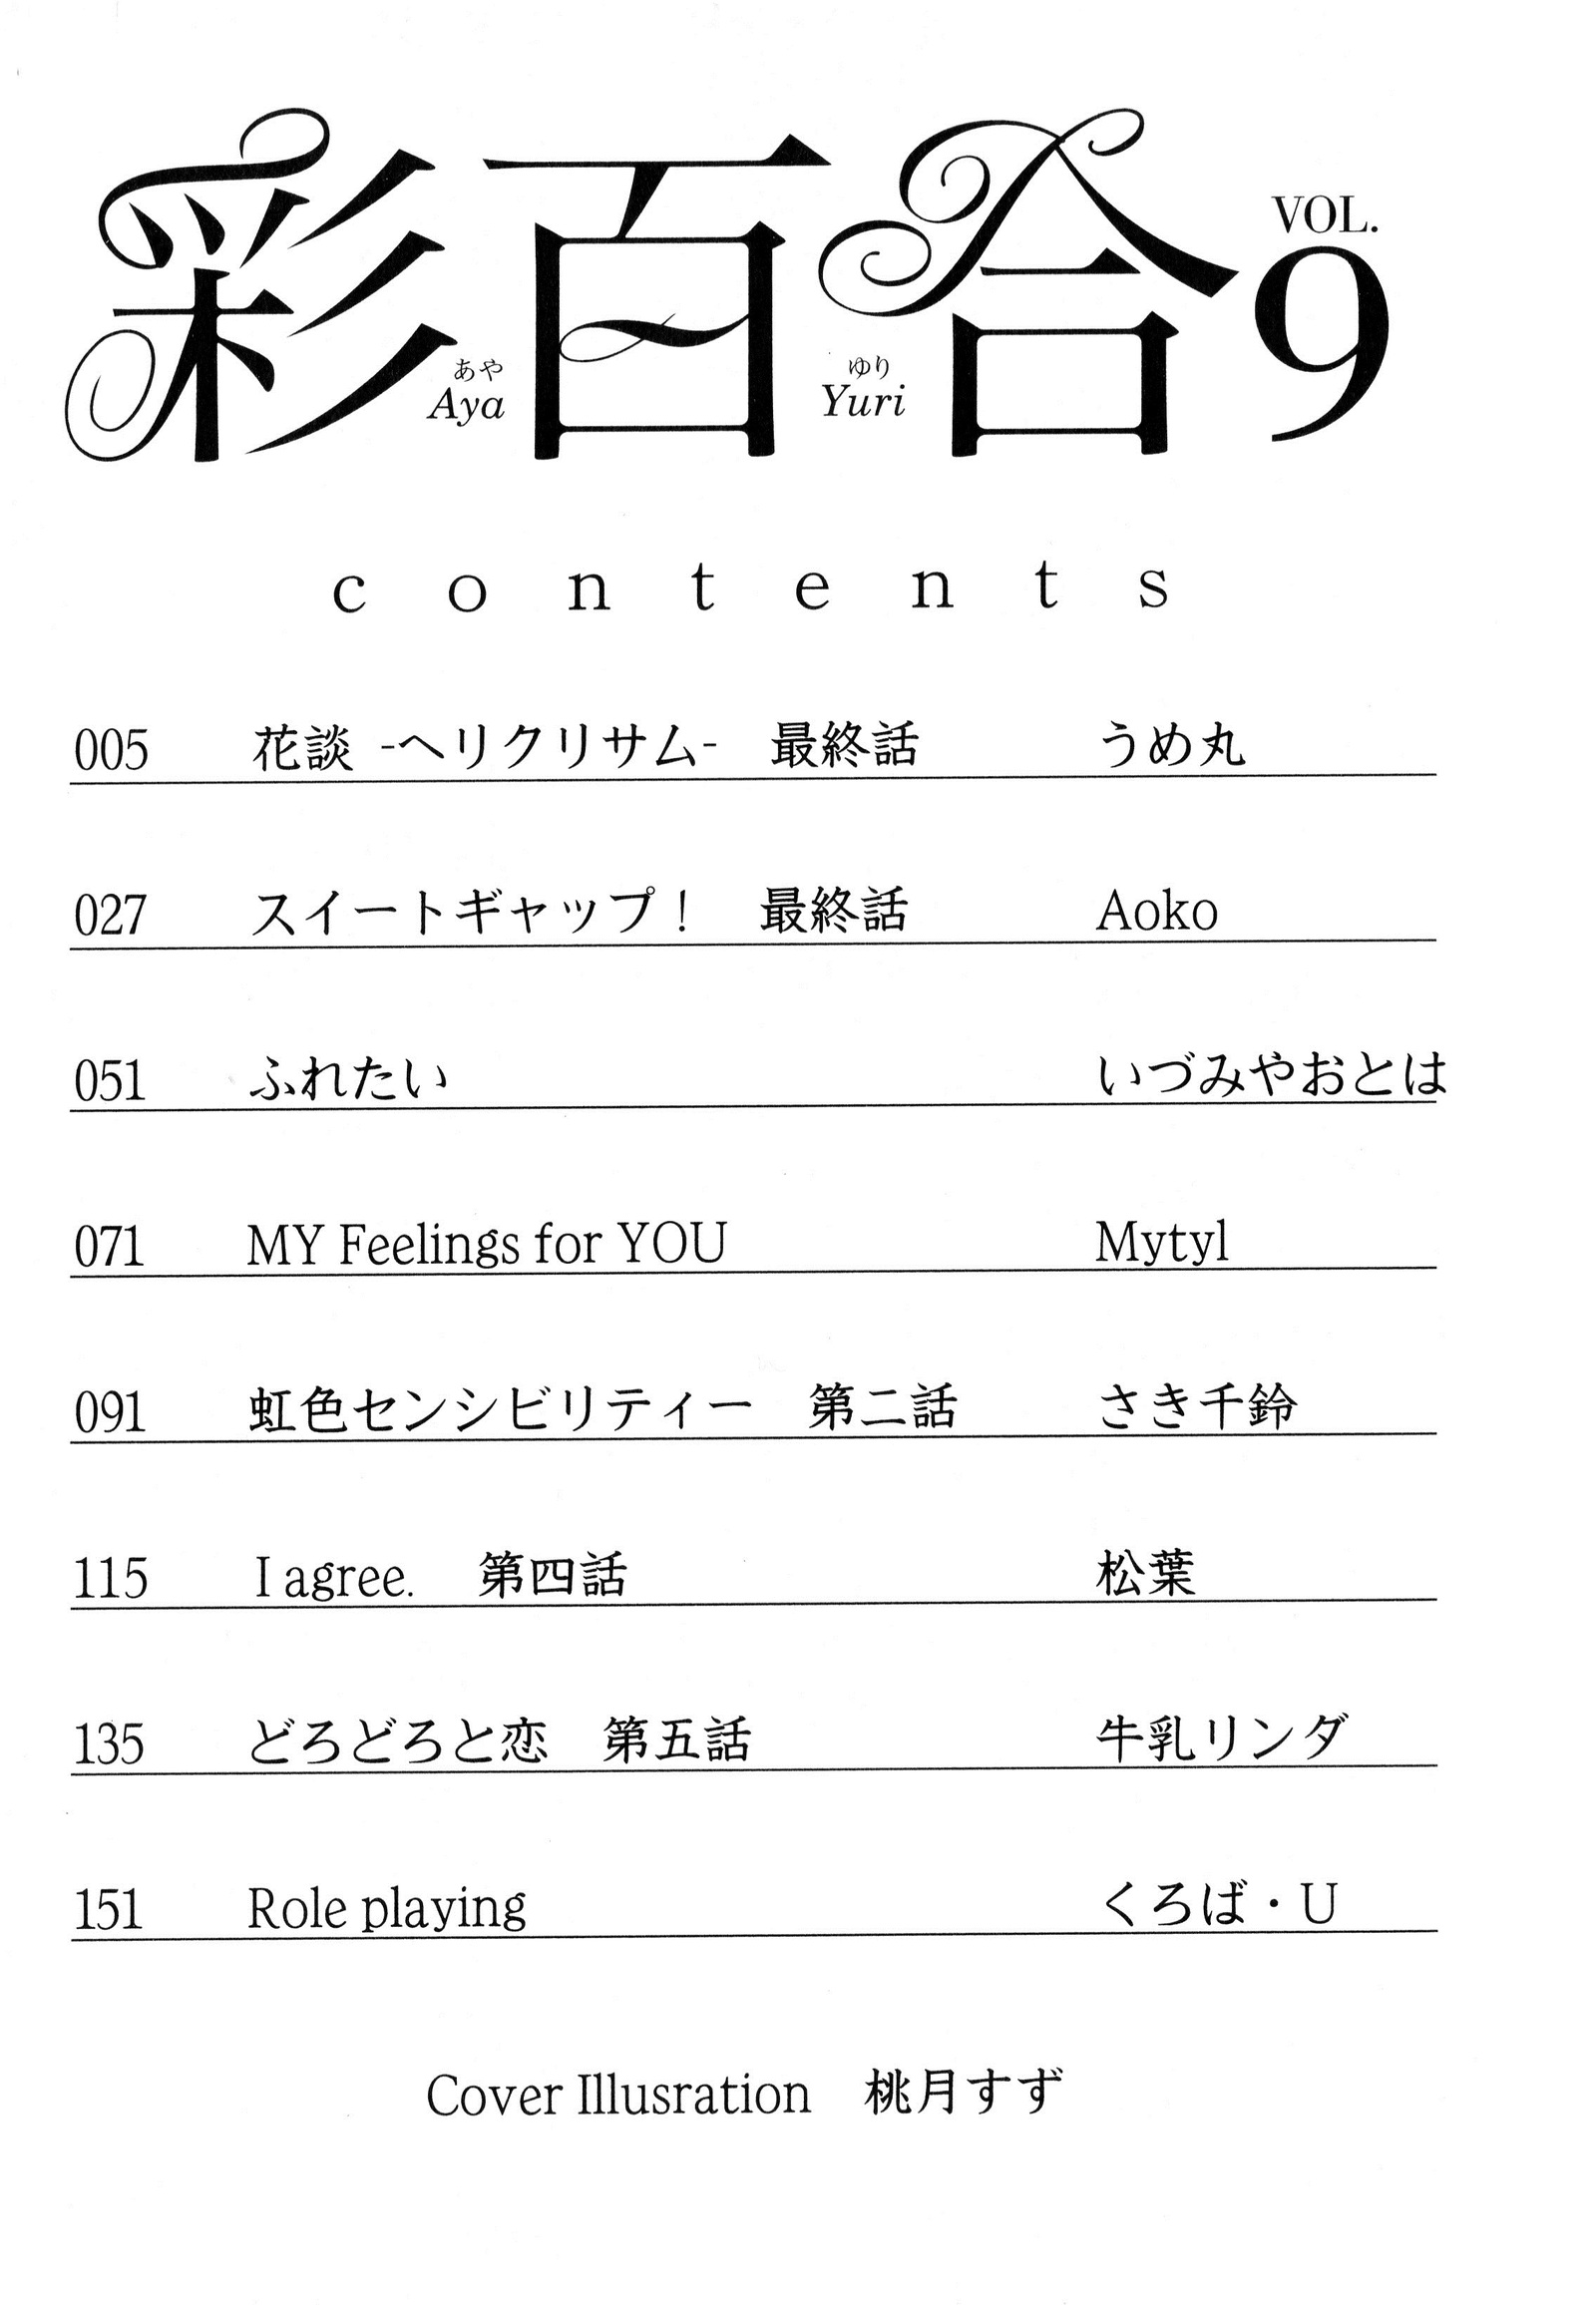 彩百合
あや
Aya
ゆり
Yuri
VOL.
9
contents
005 花談 -ヘリクリサム- 最終話 うめ丸
027 スイートギャップ！ 最終話 Aoko
051 ふれたい いづみやおとは
071 MY Feelings for YOU Mytyl
091 虹色センシビリティー 第二話 さき千鈴
115 I agree. 第四話 松葉
135 どろどろと恋 第五話 牛乳リンダ
151 Role playing くろば・U
Cover Illusration 桃月すず